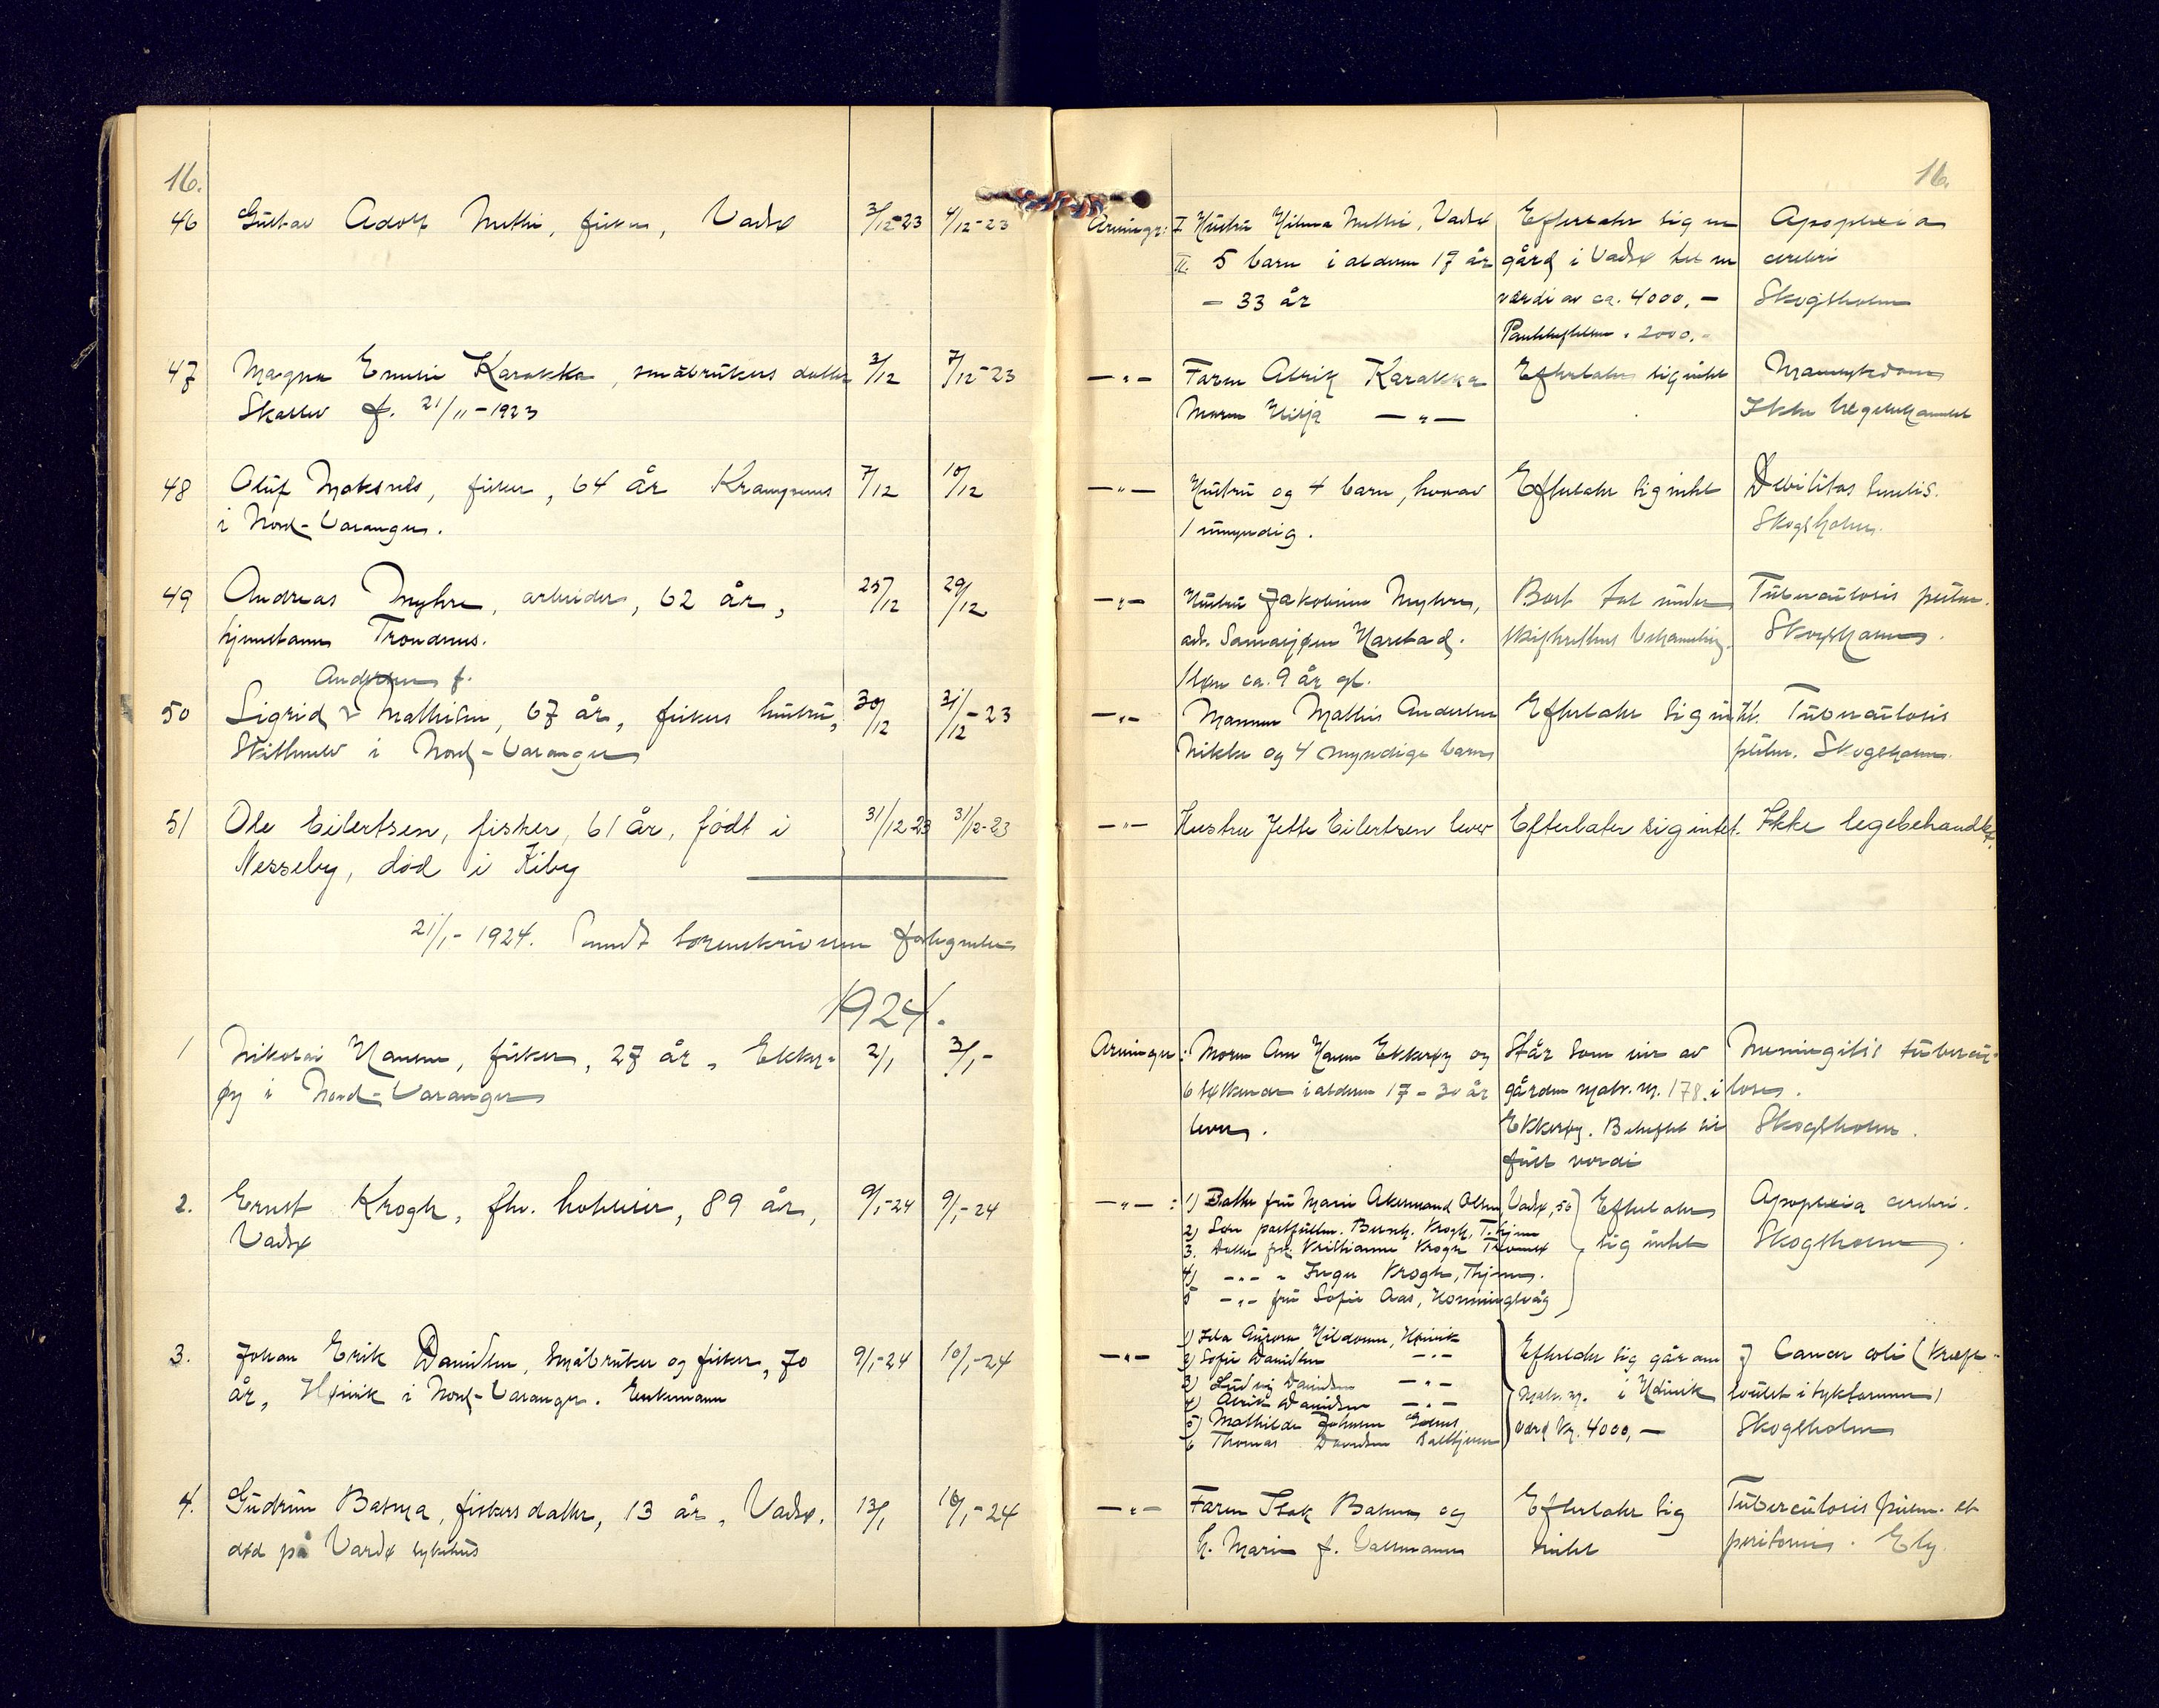 16.
46 Gustav Adolf Mathi, fisker, Vadsø 3/12-23 4/12-23
47 Magna Emilie Karakka, småbrukers datter 3/12 7/12-23
Skallev f. 21/11-1923
48 Oluf Moksnes, fisker, 64 år 7/12 10/12
i Nord-Varanger.
49 Andreas Myhre, arbeider, 62 år, 25/12 29/12
hjemstavn Trondenes.
Andersen f.
50 Sigrid Mathisen, 67 år, fiskers hustru, 30/12 31/12-23
i Nord-Varanger
51 Ole Eilertsen, fisker, 61 år, født i 31/12-23 31/12-23
Nesseby, død i Kiby
21/1-1924. Sendt sorenskriveren
1924.
1 Nikolai Hansen, fisker, 27 år, Ekker- 2/1 3/1-
øy i Nord-Varanger
2. Ernst Krogh, fhv. hoteleier, 89 år, 9/1-24 9/1-24
Vadsø
3. Johan Erik Danielsen, småbruker og fisker, 70 9/1-24 10/1-24
år, Høivik i Nord-Varanger. Enkemann
4. Gudrun Basma, fiskers datter, 13 år, Vadsø, 13/1 16/1-24
død på Vardø sykehus
16.
Arvinger: I Hustru Hilma Mathi, Vadsø Efterlater sig en Apoplexia
II. 5 barn i alderen 17 år gård i Vadsø til en cerebri
- 33 år værdi av ca. 4000,- Skogsholm
2000,-
-"- Faren Alrik Karakka Efterlater sig intet
Moren Hilja -"- Ikke lægebehandlet
-"- Hustru og 4 barn, hvorav Efterlater sig intet Debilitas senilis.
1 umyndig. Skogsholm.
-"- Hustru Jakobine Myhre, Bort tat under Tuberculosis pulm.
adr. Harstad. skifterettens behandling. Skogsholm.
1 ca. 9 år gl.
-"- Mannen Mathis Andersen Efterlater sig intet. Tuberculosis
Nikka og 4 myndige barn pulm. Skogsholm.
-"- Hustru Jette Eilertsen lever Efterlater sig intet. Ikke legebehandlet.
Arvinger: Moren Ane Hansen Ekkerøy og Står som eier av Meningitis tubercu-
6 søskende i alderen 17-30 år gården matr. nr. 178 i losa.
lever. Ekkerøy. Beheftet til Skogsholm.
full verdi
-"-: 1) Datter fru Marie Akermand Olsen, Vadsø, 50 Efterlater Apoplexia cerebri.
2) Søn Krogh, sig intet Skogsholm.
3. Datter frk. Kristianne Krogh Tromsø
4) -"- " Inga Krogh,
5 -"- fru Sofie Aas, Honningsvåg
-"- 1) Ida Aurora Hildonen, Høivik Efterlater sig gården Cancer coli (kræft-
2) Sofie Danielsen -"- matr. nr. i Høivik svulst i tyktarmen)
3) Ludvig Danielsen -"- værd kr. 4000,- Skogsholm
4) Alrik Danielsen -"-
5) Mathilde Johnsen
6 Thomas Danielsen
-"- Faren Isak Basma og Efterlater sig Tuberculosis pulm. et
h. Marie f. intet peritonei.